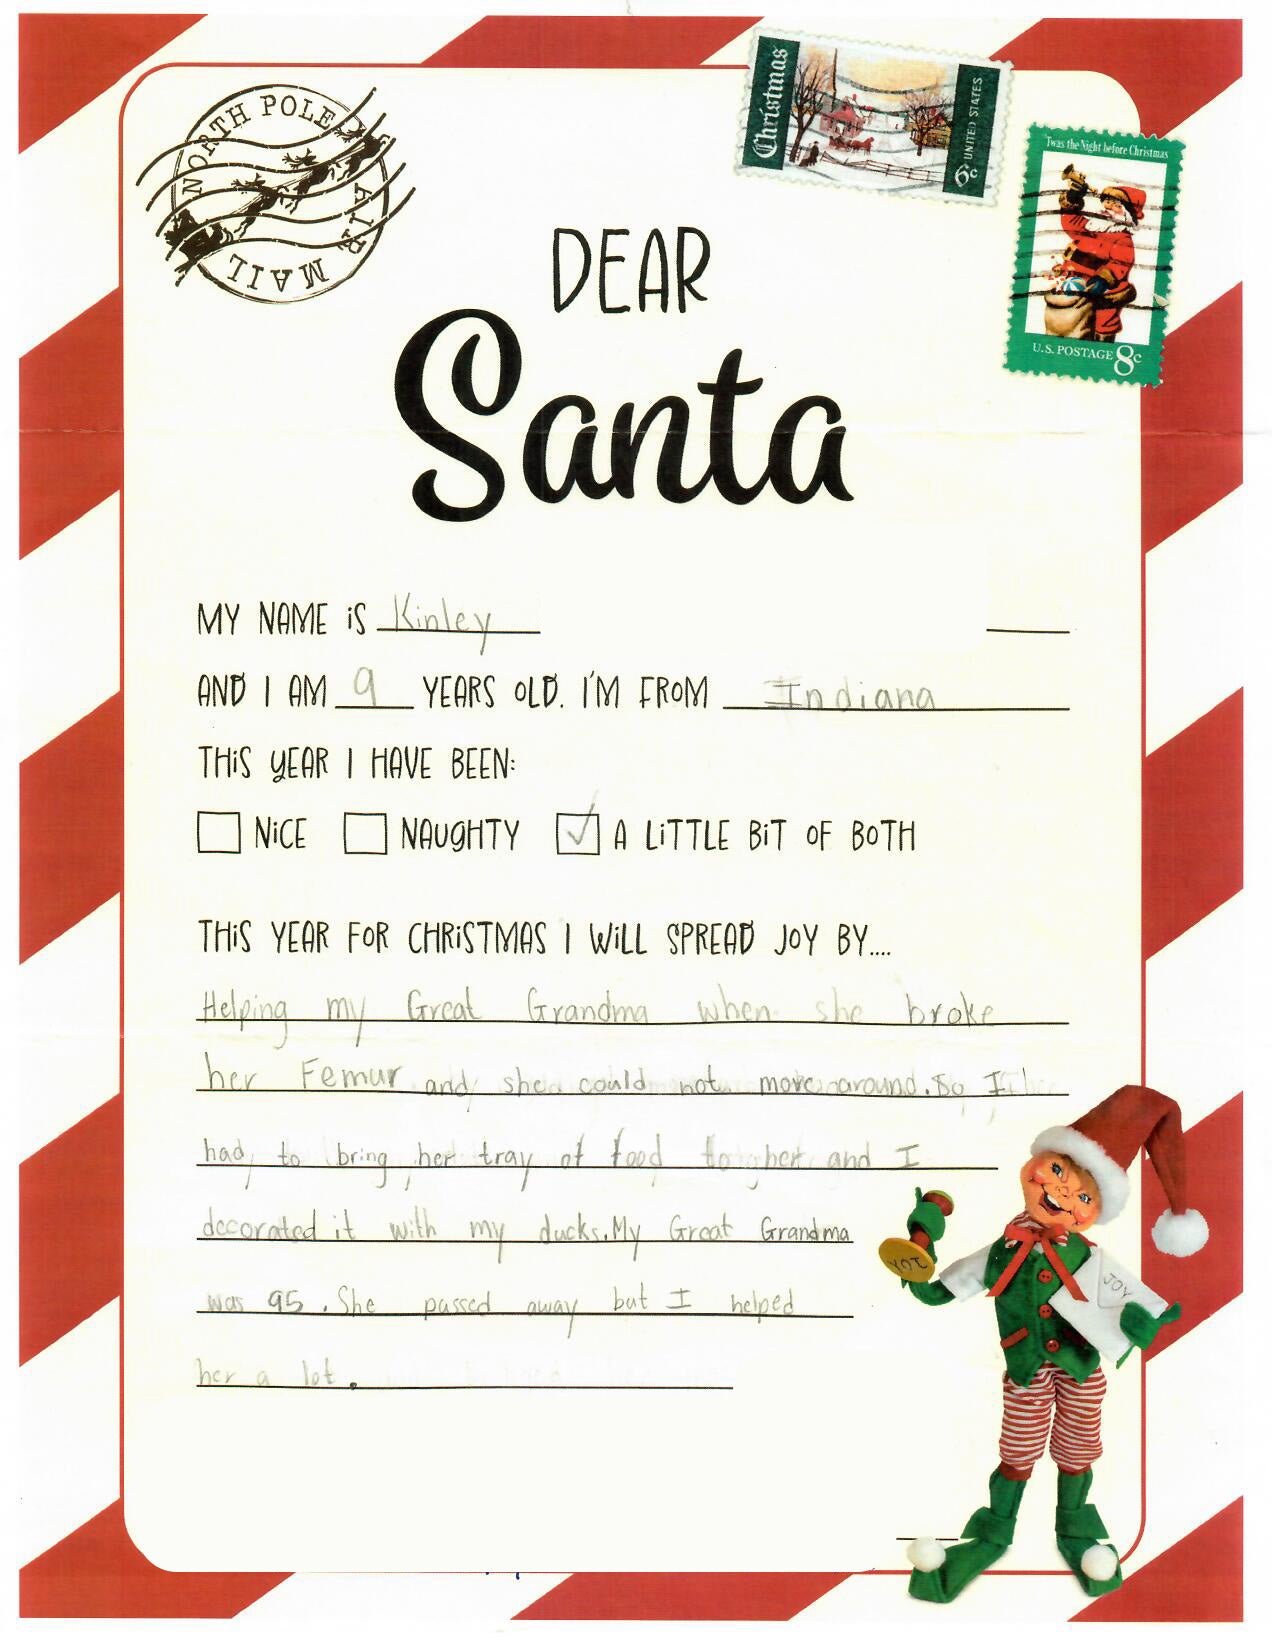 NORTH POLE
AIR MAIL
Christmas
6c UNITED STATES
'Twas the Night before Christmas
U.S. POSTAGE 8c
DEAR
Santa
MY NAME iS Kinley
AND I AM 9 YEARS OLD. I'M FROM Indiana
THiS YEAR I HAVE BEEN:
NiCE NAUGHTY ✓ A LiTTLE BiT OF BOTH
THiS YEAR FOR CHRiSTMAS I WiLL SPREAD JOY BY....
Helping my Great Grandma when she broke
her Femur and she could not move around. So I
had to bring her tray of food to her and I
decorated it with my ducks. My Great Grandma
was 95. She passed away but I helped
her a lot.
JOY
JOY